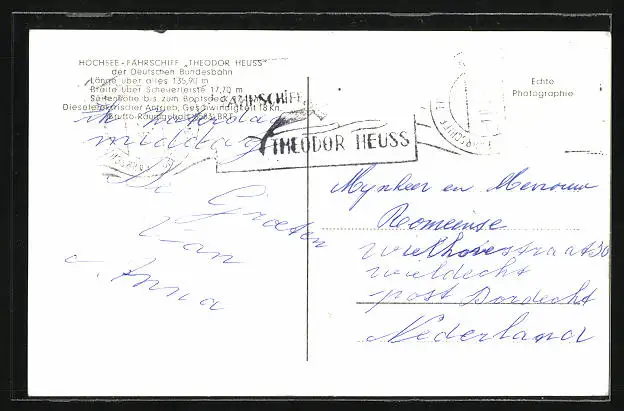 HOCHSEE-FÄHRSCHIFF „THEODOR HEUSS"
der Deutschen Bundesbahn
Länge über alles 135,90 m
Breite über Scheuerleiste 17,70 m
Seitenhöhe bis zum Bootsdeck
Dieselelektrischer Antrieb, Geschwindigkeit 18 Kn.
Brutto-Raumgehalt BRT
zaterdag
middag
De Groeten
van
Anna
FÄHRSCHIFF
THEODOR HEUSS
Echte
Photographie
Mynheer en Mevrouw
Romeinse
30
post Dordecht
Nederland